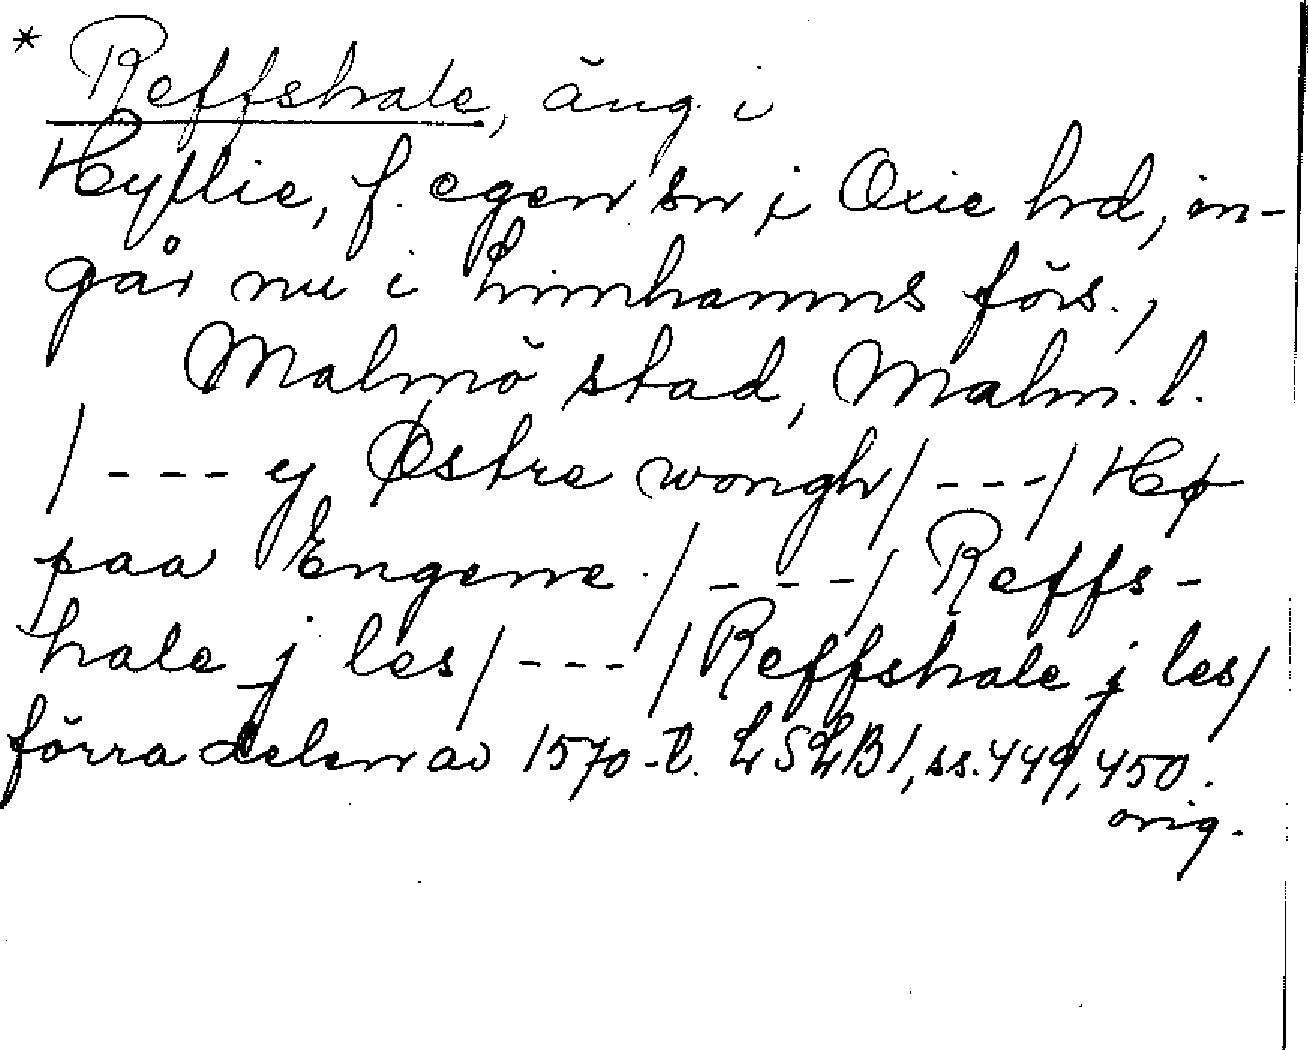 * Reffshale, äng i
Hyllie, f. egen sn i Oxie hrd, in-
går nu i Limhamns förs.,
Malmö stad, Malm. l.
/--- ij Østre wongh/---/ Hø
paa Engerne /---/ Reffs-
hale j les/---/Reffshale j les/
förra delen av 1570-t. LSLB1, ss. 449, 450.
orig.